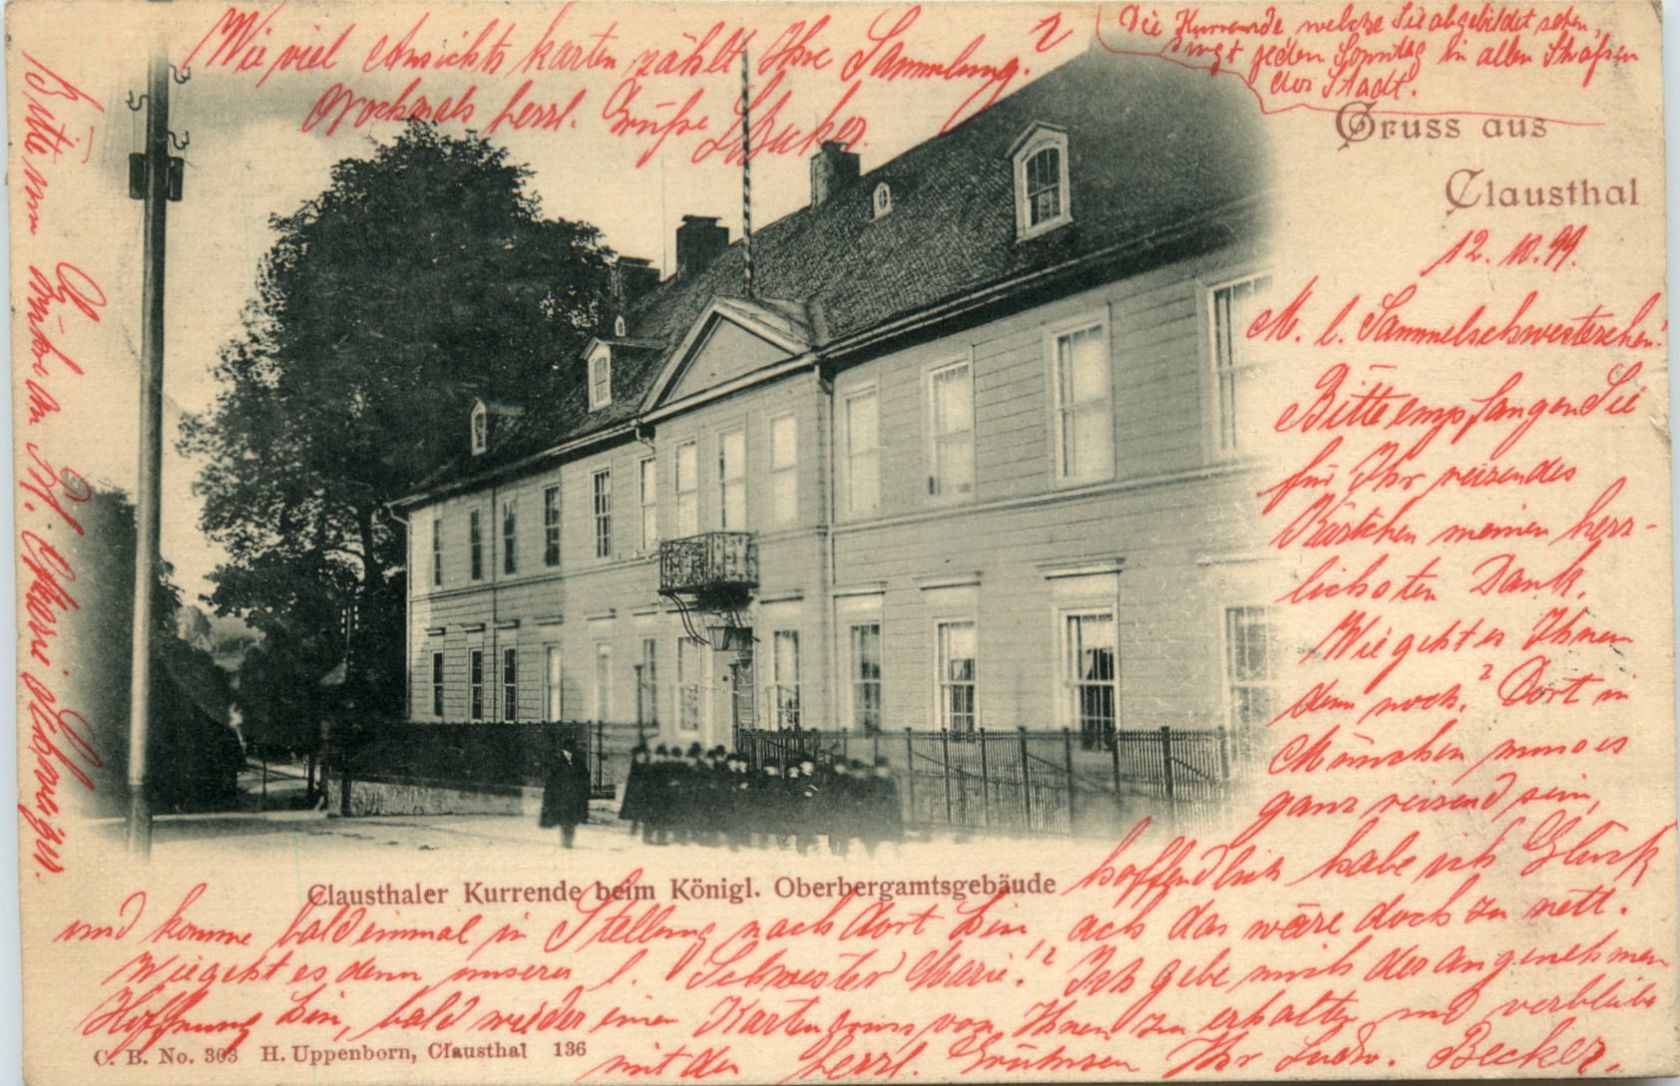 Wie viel Ansichtskarten zählt Ihre Sammlung?
Nochmals herzl. Grüße L. Becker.
Die Kurrende welche Sie abgebildet sehen,
singt jeden Sonntag in allen Straßen
der Stadt.
Gruss aus
Clausthal
12. 10. 99.
M. l. Sammelschwesterchen!
Bitte empfangen Sie
für Ihr reizendes
Kärtchen meinen herz-
lichsten Dank.
Wie geht es Ihnen
denn noch? Dort in
München muss es
ganz reizend sein,
hoffendlich habe ich Glück
und komme bald einmal in Stellung nach dort hin, ach das wäre doch zu nett.
Wie geht es denn unserer l. Schwester Marie!? Ich gebe mich der angenehmen
Hoffnung hin, bald wieder einen Kartengruss von Ihnen zu erhalten und verbleibe
mit den herzl. Grüssen Ihr Ludw. Becker.
Clausthaler Kurrende beim Königl. Oberbergamtsgebäude
C. B. No. 303 H. Uppenborn, Clausthal 136
Bitte um
an Frl. Marie